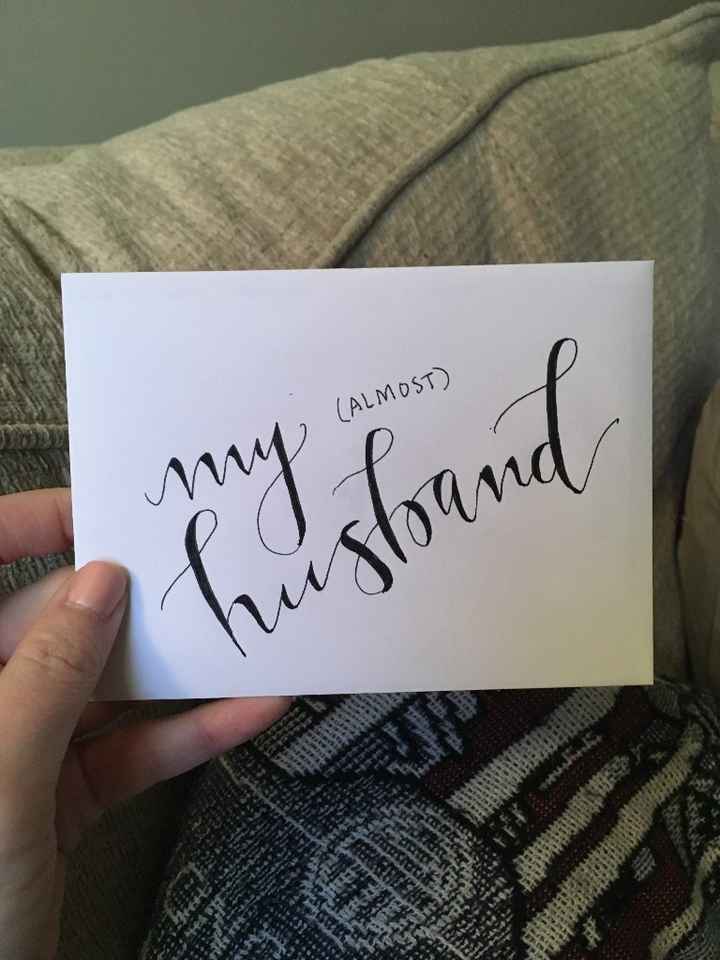 my (ALMOST)
husband